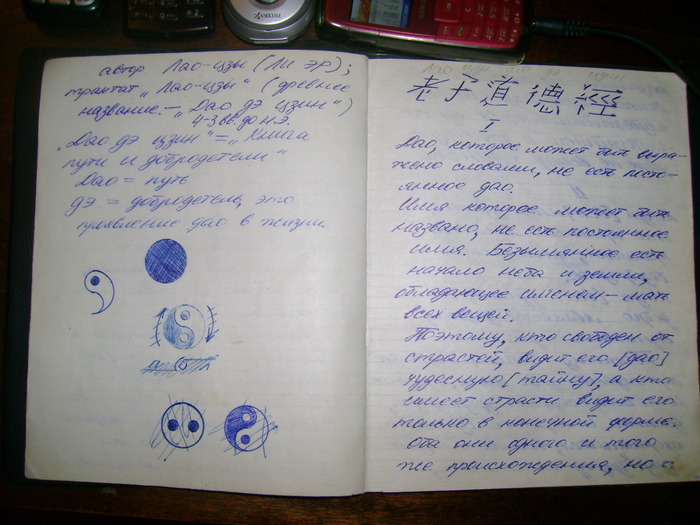 автор Лао-цзы (Ли Эр);
трактат „Лао-цзы“ (древнее
название – „Дао дэ цзин“)
4-3 вв. до н.э.
„Дао дэ цзин“ = „Книга
пути и добродетели“
Дао = путь
дэ = добродетель, это
проявление дао в жизни.
老子道德經
I
Дао, которое может быть выра-
жено словами, не есть посто-
янное дао.
Имя которое может быть
названо, не есть постоянное
имя. Безымянное есть
начало неба и земли,
обладающее именем – мать
всех вещей.
Поэтому, кто свободен от
страстей, видит его [дао]
чудесную [тайну], а кто
имеет страсти видит его
только в конечной форме.
Оба они одного и того
же происхождения, но с